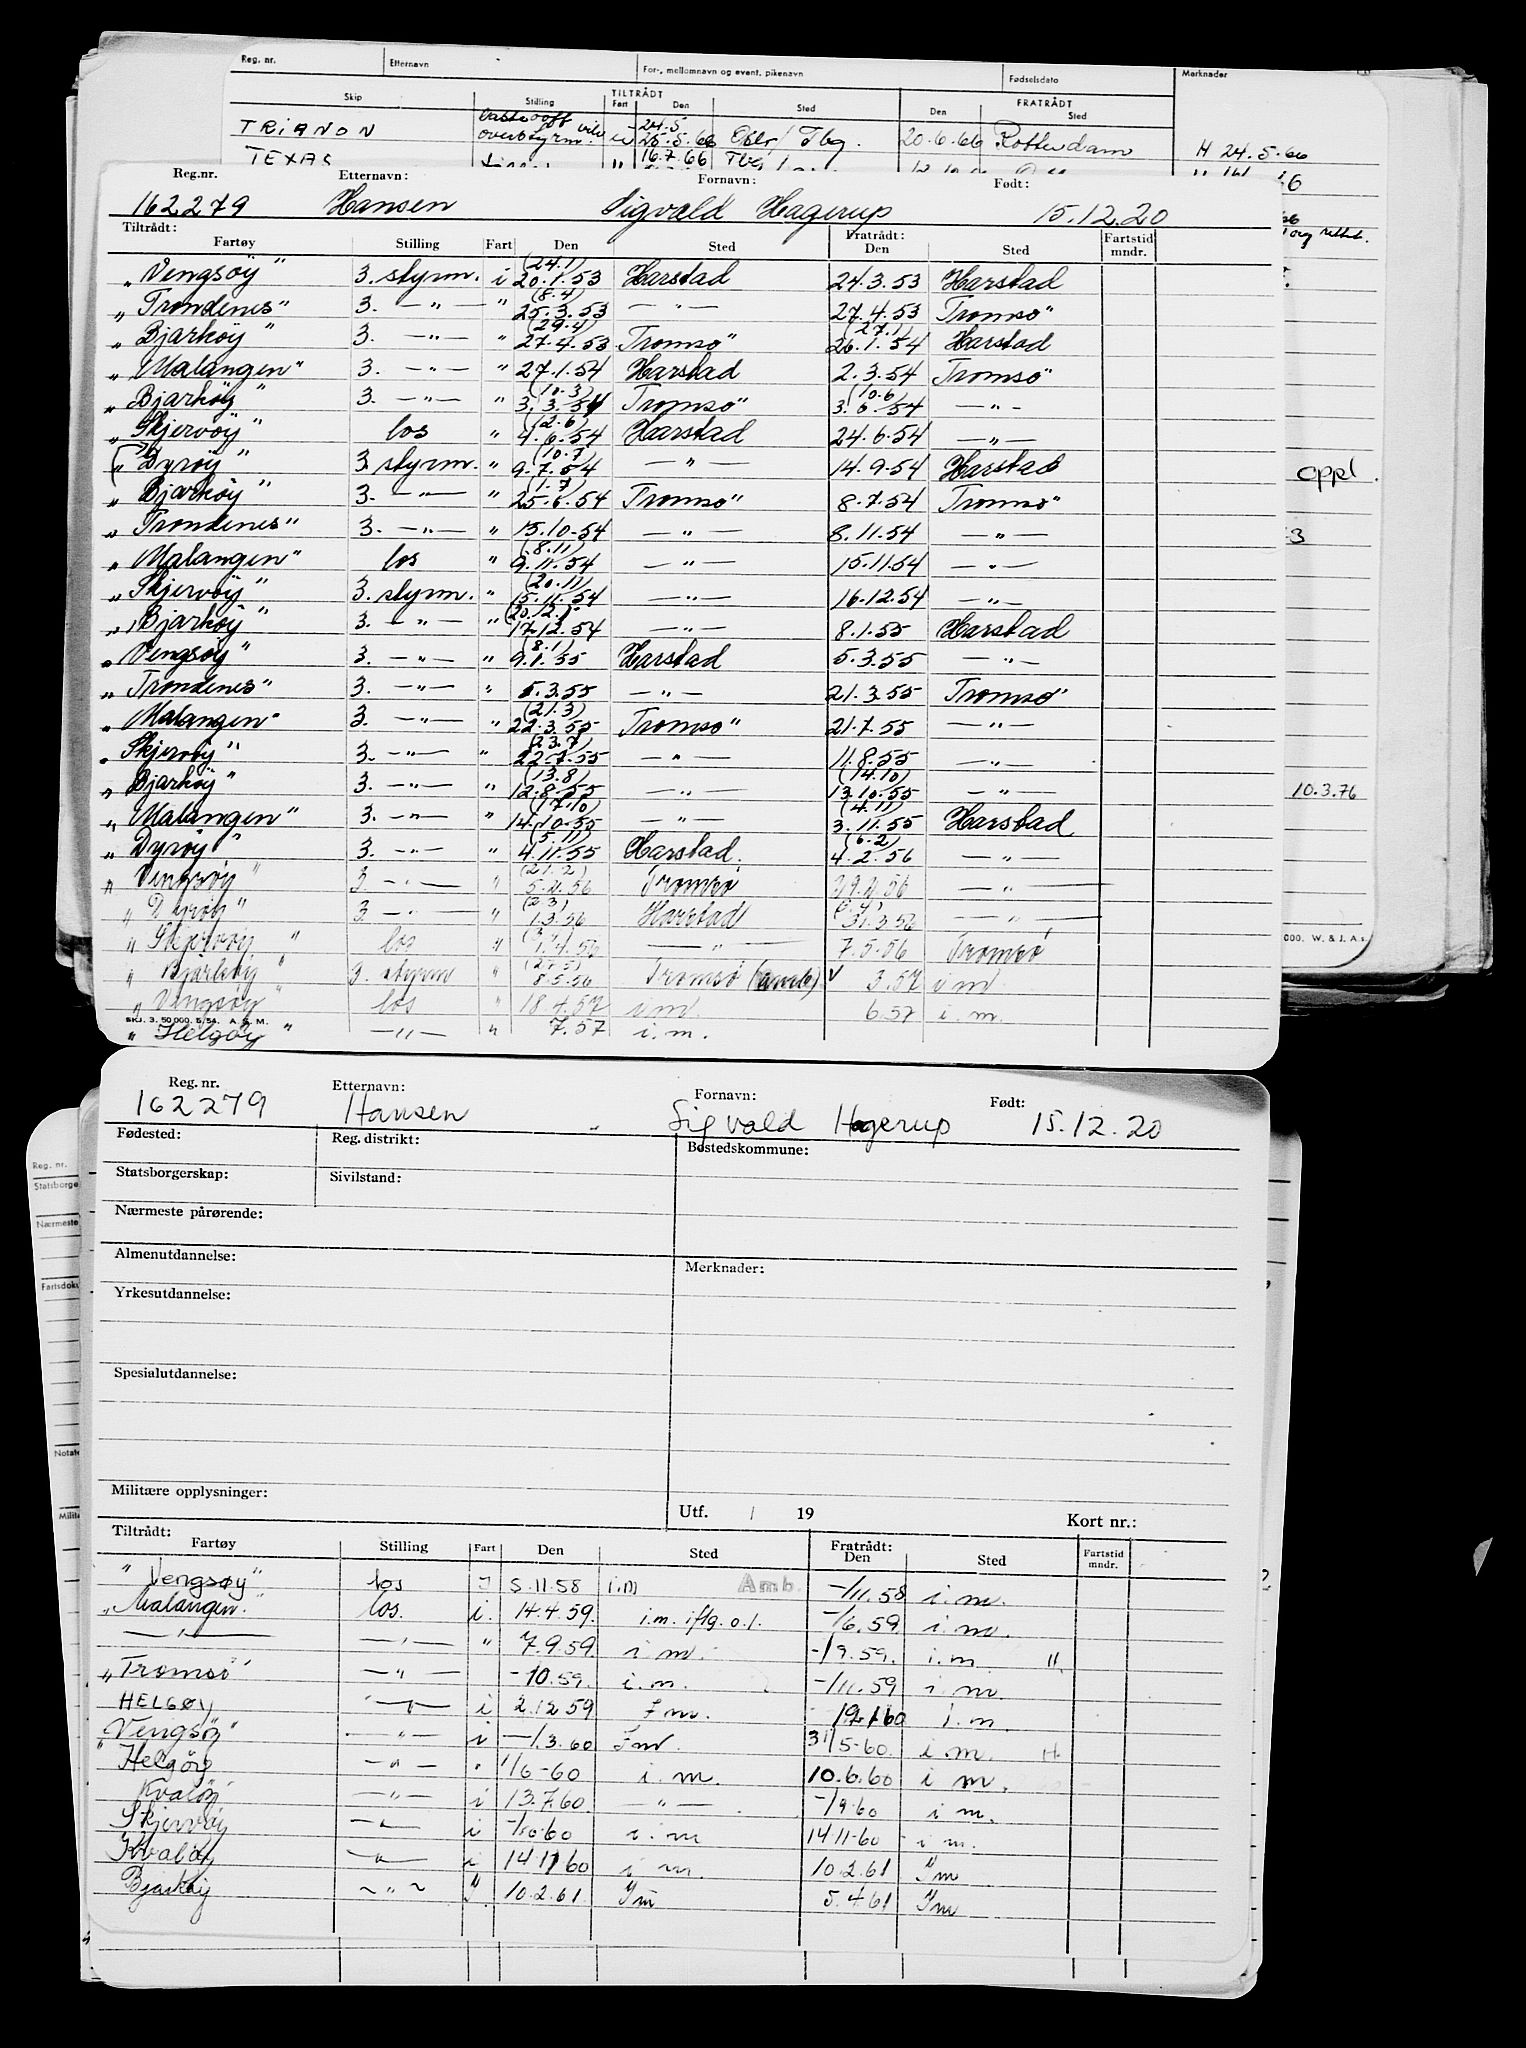 Reg. nr. Etternavn For-, mellomnavn og event. pikenavn Fødselsdato Merknader
TILTRÅDT FRATRÅDT
Skip Stilling Fart Den Sted Den Sted
24.5
TRIANON overstyrm. 25.5.66 Oslo/Tbg. 20.6.66 Rotterdam H 24.5.66
TEXAS " 16.7.66 Tbg
Reg.nr. Etternavn: Fornavn: Født:
162279 Hansen Sigvald Hagerup 15.12.20
Tiltrådt: Fratrådt:
Fartøy Stilling Fart Den Sted Den Sted Fartstid mndr.
(24.1)
"Vengsöy" 3. styrm. i 20.1.53 Harstad 24.3.53 Harstad
(8.4)
"Trondenes" 3. — " — " 25.3.53 — " — 27.4.53 Tromsö"
(29.4) (27.1)
"Bjarköy" 3. — " — " 27.4.53 Tromsö" 26.1.54 Harstad
"Malangen" 3. — " — " 27.1.54 Harstad 2.3.54 Tromsö"
(10.3) (10.6)
"Bjarköy" 3. — " — " 3.3.54 Tromsö" 3.6.54 — " —
(2.6)
"Skjervöy" los " 4.6.54 Harstad 24.6.54 — " —
(10.7)
"Dyröy" 3 styrm. " 9.7.54 — " — 14.9.54 Harstad
(1.7)
"Bjarköy" 3. — " — " 25.6.54 Tromsö" 8.7.54 Tromsö"
"Trondenes" 3. — " — " 15.10.54 — " — 8.11.54 — " —
(8.11)
"Malangen" los " 9.11.54 — " — 15.11.54 — " —
(20.11)
"Skjervöy" 3. styrm. " 15.11.54 — " — 16.12.54 — " —
(20.12)
"Bjarköy" 3. — " — " 17.12.54 — " — 8.1.55 Harstad
(8.1)
"Vengsöy" 3. — " — " 9.1.55 Harstad 5.3.55 — " —
"Trondenes" 3. — " — " 5.3.55 — " — 21.3.55 Tromsö"
(21.3)
"Malangen" 3. — " — " 22.3.55 Tromsö" 21.7.55 — " —
(23.7)
"Skjervöy" 3. — " — " 22.7.55 — " — 11.8.55 — " —
(13.8) (14.10)
"Bjarköy" 3. — " — " 12.8.55 — " — 13.10.55 — " —
(17.10) (4.11)
"Malangen" 3. — " — " 14.10.55 — " — 3.11.55 Harstad
(5.11) (6.2)
"Dyröy" 3. — " — " 4.11.55 Harstad. 4.2.56 — " —
(21.2)
"Vengsöy" 3. — " — " 5.2.56 Tromsö 29.2.56 — " —
(2.3)
"Dyröy" 3. — " — " 1.3.56 Harstad 31.3.56 — " —
"Skjervöy" los " 1.4.56 — " — 7.5.56 Tromsö
"Bjarköy" 3. styrm " 8.5.56 Tromsö 3.57 i m
"Vengsöy" los " 18.4.57 i m. 6.57 i. m.
SKJ. 3. 50 000. 5/54. A. G. M.
"Helgöy" — " — " 7.57 i. m.
oppl.
10.3.76
000. W. & J. A.s
Reg. nr. Etternavn: Fornavn: Født:
162279 Hansen Sigvald Hagerup 15.12.20
Fødested: Reg. distrikt: Bostedskommune:
Statsborgerskap: Sivilstand:
Nærmeste pårørende:
Almenutdannelse: Merknader:
Yrkesutdannelse:
Spesialutdannelse:
Militære opplysninger:
Utf. / 19 Kort nr.:
Tiltrådt: Fratrådt:
Fartøy Stilling Fart Den Sted Den Sted Fartstid mndr.
"Vengsøy" los I 5.11.58 i.m Amb. -/11.58 i. m.
"Malangen" los. i. 14.4.59. i.m. iflg. o.l. -/6.59 i. m.
— " — — " — " 7.9.59. i m. -/9.59. i. m H.
"Tromsö" — " — -10.59. i. m. -/11.59 i. m.
HELGØY — " — i 2.12.59 I m. 19.1.60 i. m.
"Vengsöy" — " — i —/3.60 Im. 31/5-60. i m. H.
"Helgöy — " — " 1/6-60 i. m. 10.6.60 i m.
Kvaløy — " — i 13.7.60. " — -/9.60 i m.
Skjervöy — " — i -/10.60 i. m 14 11-60 i m.
Kvaløy — " — i 14.11.60 i m. 10.2.61 Im
Bjarköy ~ " ~ I 10.2.61. Im 5.4.61 Im
Reg. nr.
Statsborge
Nærmeste
Fartsdoku
Notate
Milita